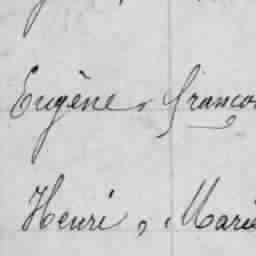 Eugène, Franço
Henri, Marie